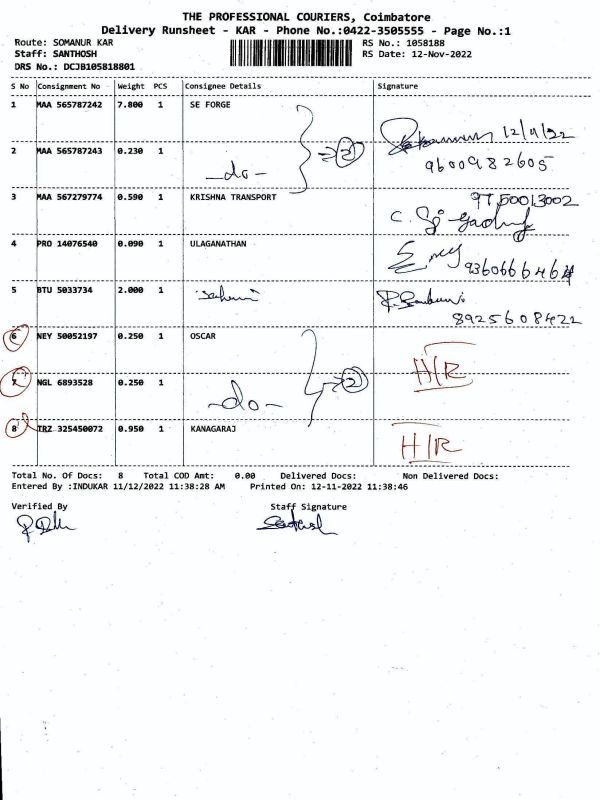 THE PROFESSIONAL COURIERS, Coimbatore
Delivery Runsheet - KAR - Phone No.:0422-3505555 - Page No.:1
Route: SOMANUR KAR RS No.: 1058188
Staff: SANTHOSH RS Date: 12-Nov-2022
DRS No.: DCJB105818801
S No Consignment No Weight PCS Consignee Details Signature
1 MAA 565787242 7.800 1 SE FORGE 12/11/22
2 MAA 565787243 0.230 1 -do- ⇒ 2 9600982605
3 MAA 567279774 0.590 1 KRISHNA TRANSPORT 9750013002
4 PRO 14076540 0.090 1 ULAGANATHAN 9360666464
5 BTU 5033734 2.000 1 8925608422
6 NEY 50052197 0.250 1 OSCAR H/R
7 NGL 6893528 0.250 1 -do- → 2
8 TRZ 325450072 0.950 1 KANAGARAJ H/R
Total No. Of Docs: 8 Total COD Amt: 0.00 Delivered Docs: Non Delivered Docs:
Entered By :INDUKAR 11/12/2022 11:38:28 AM Printed On: 12-11-2022 11:38:46
Verified By Staff Signature